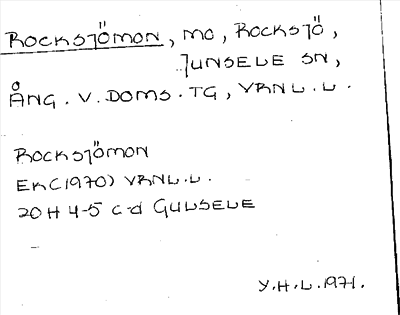 ROCKSJÖMON, MO, ROCKSJÖ,
JUNSELE SN,
ÅNG. V. DOMS. TG, VRNL.L.
ROCKSJÖMON
EK(1970) VRNL.L.
20H 4-5 c-d GULSELE
Y.H.L. 1971.